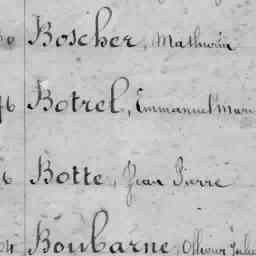 Boscher, Mathurin
Botrel, Emmanuel Mari
Botte, Jean Pierre
Boubarne, Ollivier Jule